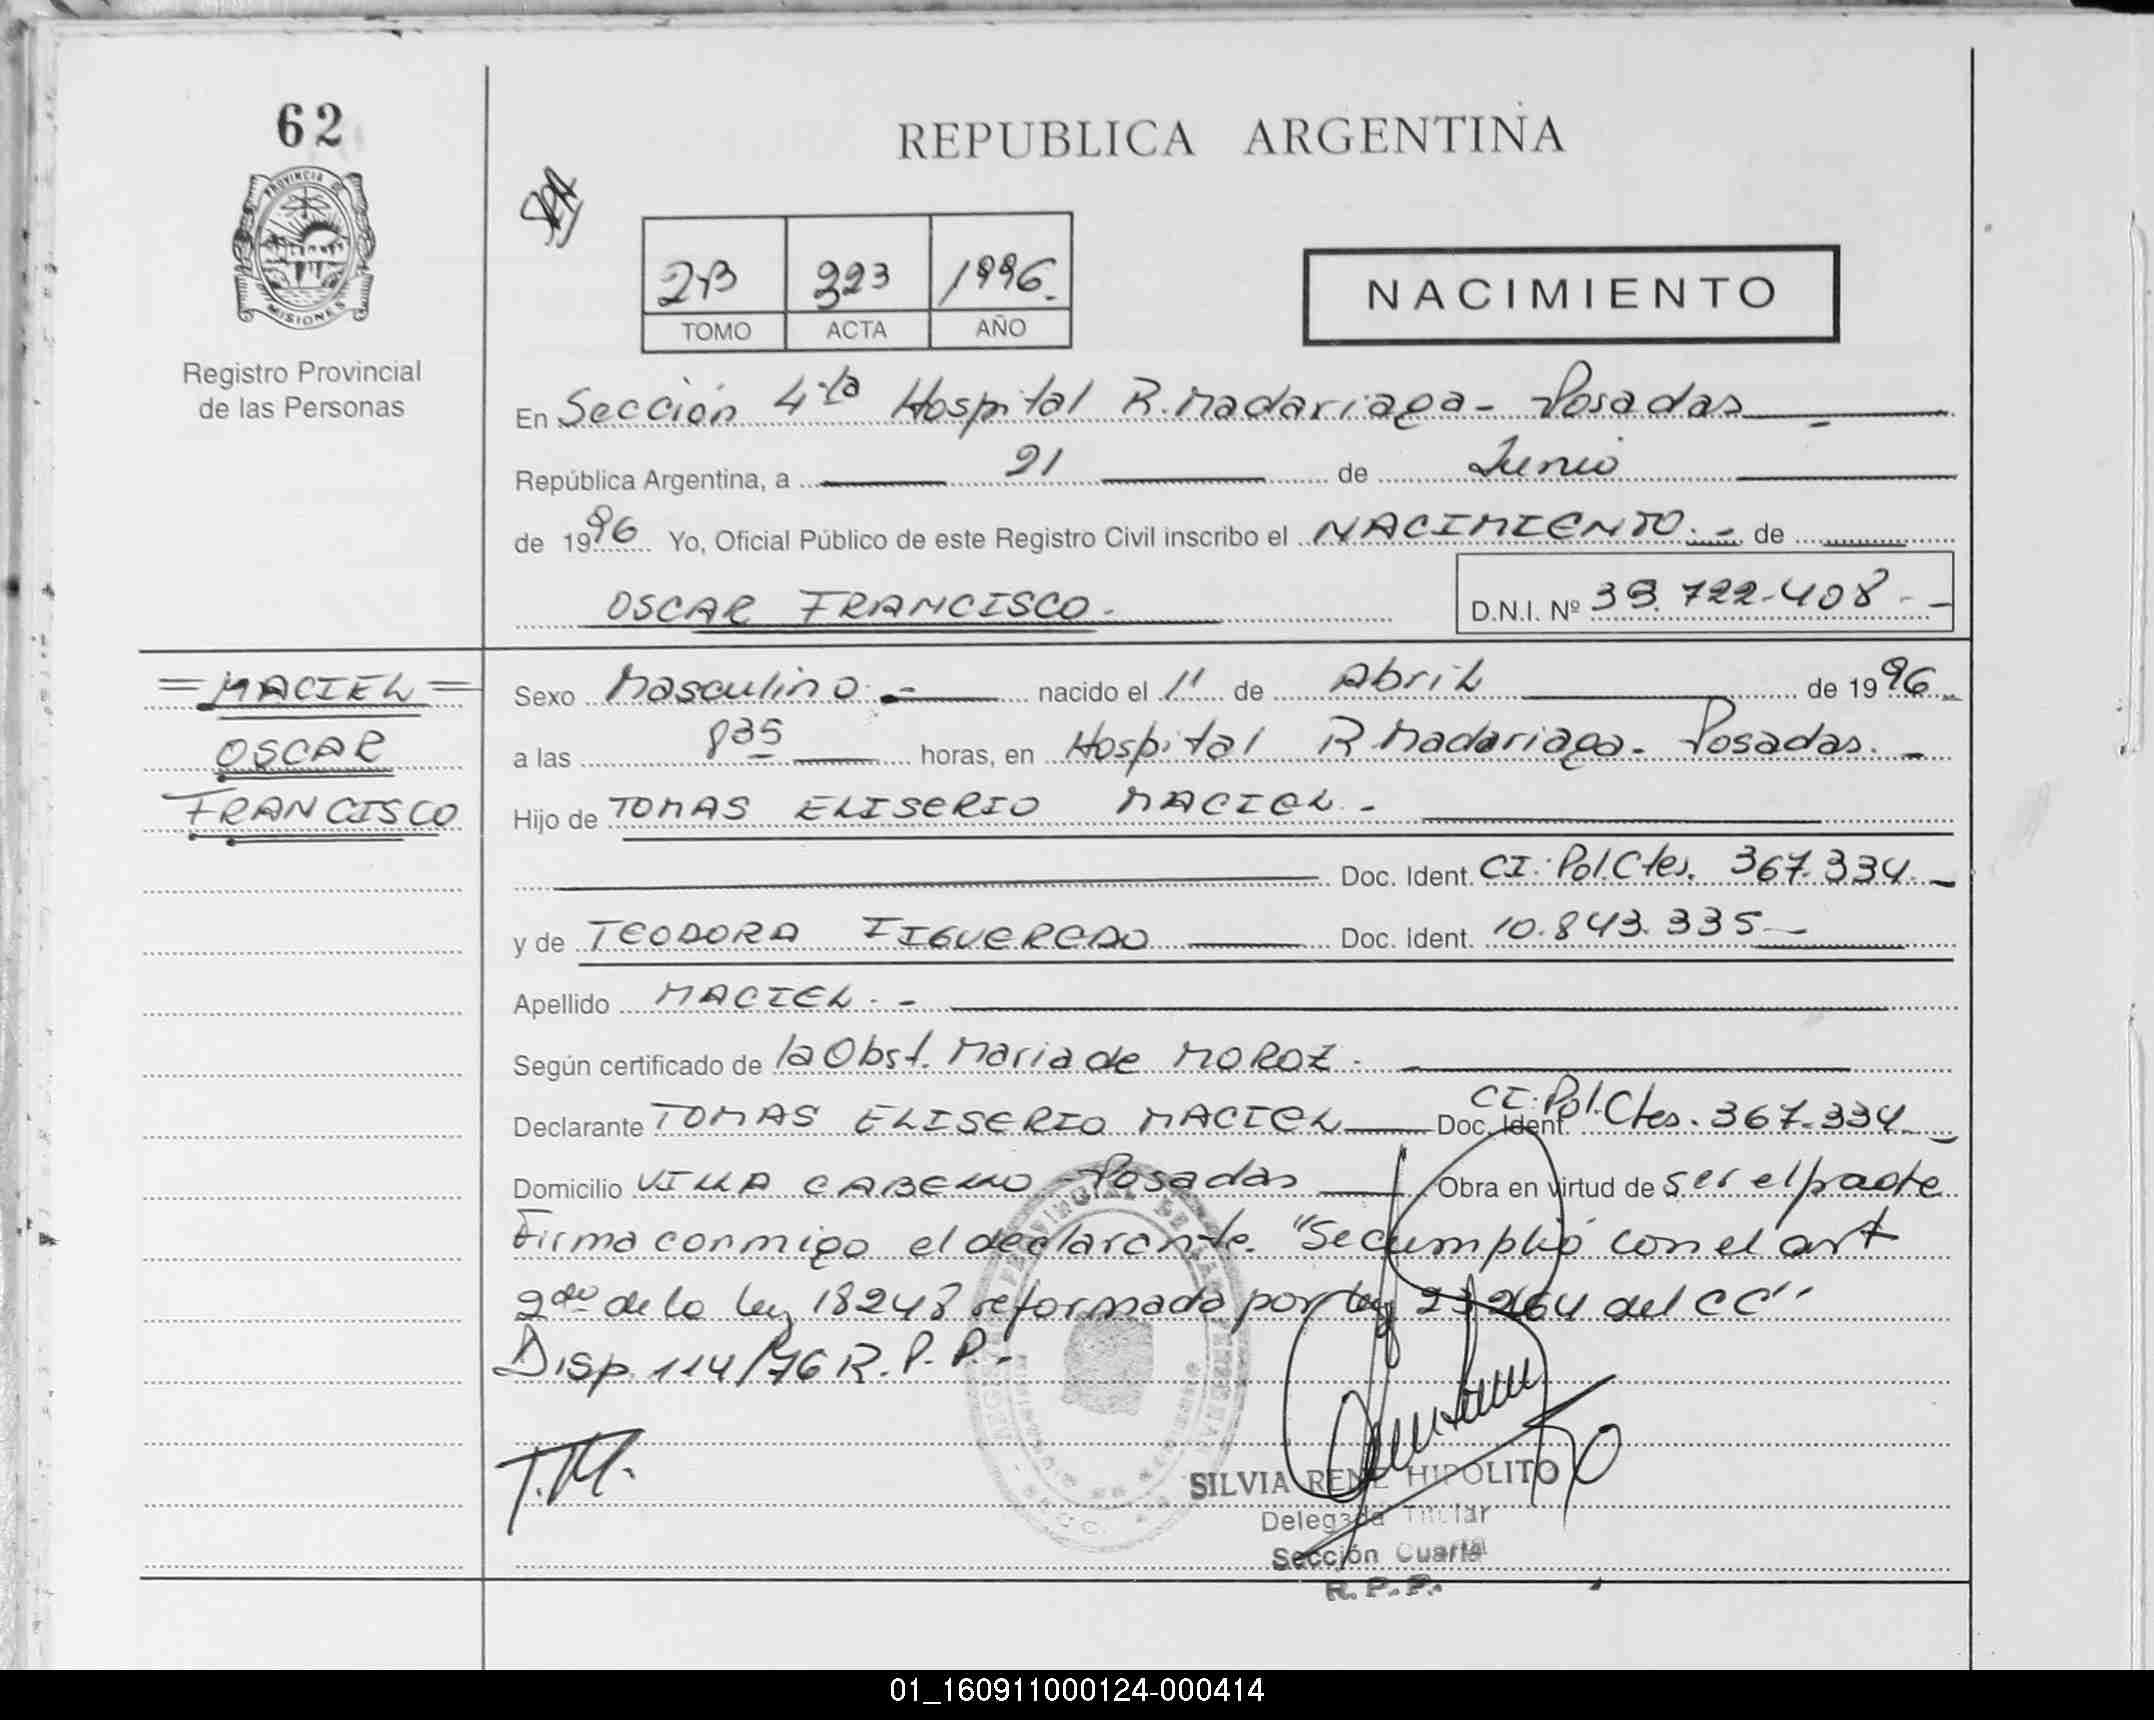 62
REPUBLICA ARGENTINA
PROVINCIA DE
MISIONES
Registro Provincial
de las Personas
2B 323 1996.
TOMO ACTA AÑO
NACIMIENTO
En Sección 4ta Hospital R. Madariaga - Posadas
República Argentina, a 21 de Junio
de 1996 Yo, Oficial Público de este Registro Civil inscribo el NACIMIENTO.- de
OSCAR FRANCISCO.- D.N.I. Nº 39.722.408.-
=MACIEL= Sexo Masculino.- nacido el 11 de Abril de 1996
OSCAR a las 835 horas, en Hospital R. Madariaga - Posadas.-
FRANCISCO Hijo de TOMAS ELISERIO MACIEL.-
Doc. Ident. CI: Pol. Ctes. 367.334.-
y de TEODORA FIGUEREDO Doc. Ident. 10.843.335
Apellido MACIEL.-
Según certificado de la Obst. Maria de MOROZ.
Declarante TOMAS ELISERIO MACIEL Doc. Ident. CI: Pol. Ctes. 367.334
Domicilio VILLA CABELLO - Posadas Obra en virtud de ser el padre
Firma conmigo el declarante. "Se cumplió con el art
2do de la ley 18248 reformada por ley 23264 del CC"
Disp. 114/76 R.P.P.
T.M.
SILVIA RENE HIPOLITO
Delegada Titular
Sección Cuarta
R.P.P.
01_160911000124-000414